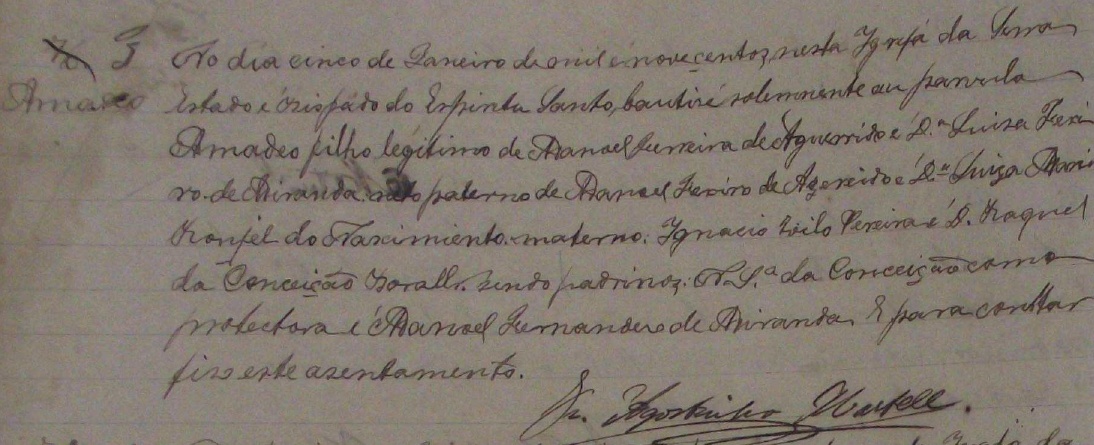 3 No dia cinco de Janeiro de mil e novecentos, nesta Igreja da Serra
Amadeo Estado e Bispado do Espiritu Santo, bautizé solemnente au parvulo
Amadeo filho legitimo de Manoel Ferreira de e D.ª Luiza
ro de Miranda neto paterno de Manoel de Azeredo e D.ª Luiza Maria
Ranjel do Nascimiento. materno. Ignacio Pereira e D. Raquel
da Conceição sendo padrinos. N. S.ª da Conceição como
protectora e Manoel Fernandes de Miranda E para consttar
fiz este asentamento.
Fr. Agostinho Martell.